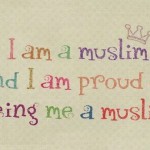 I am a muslim
nd I am proud
eing me a musli